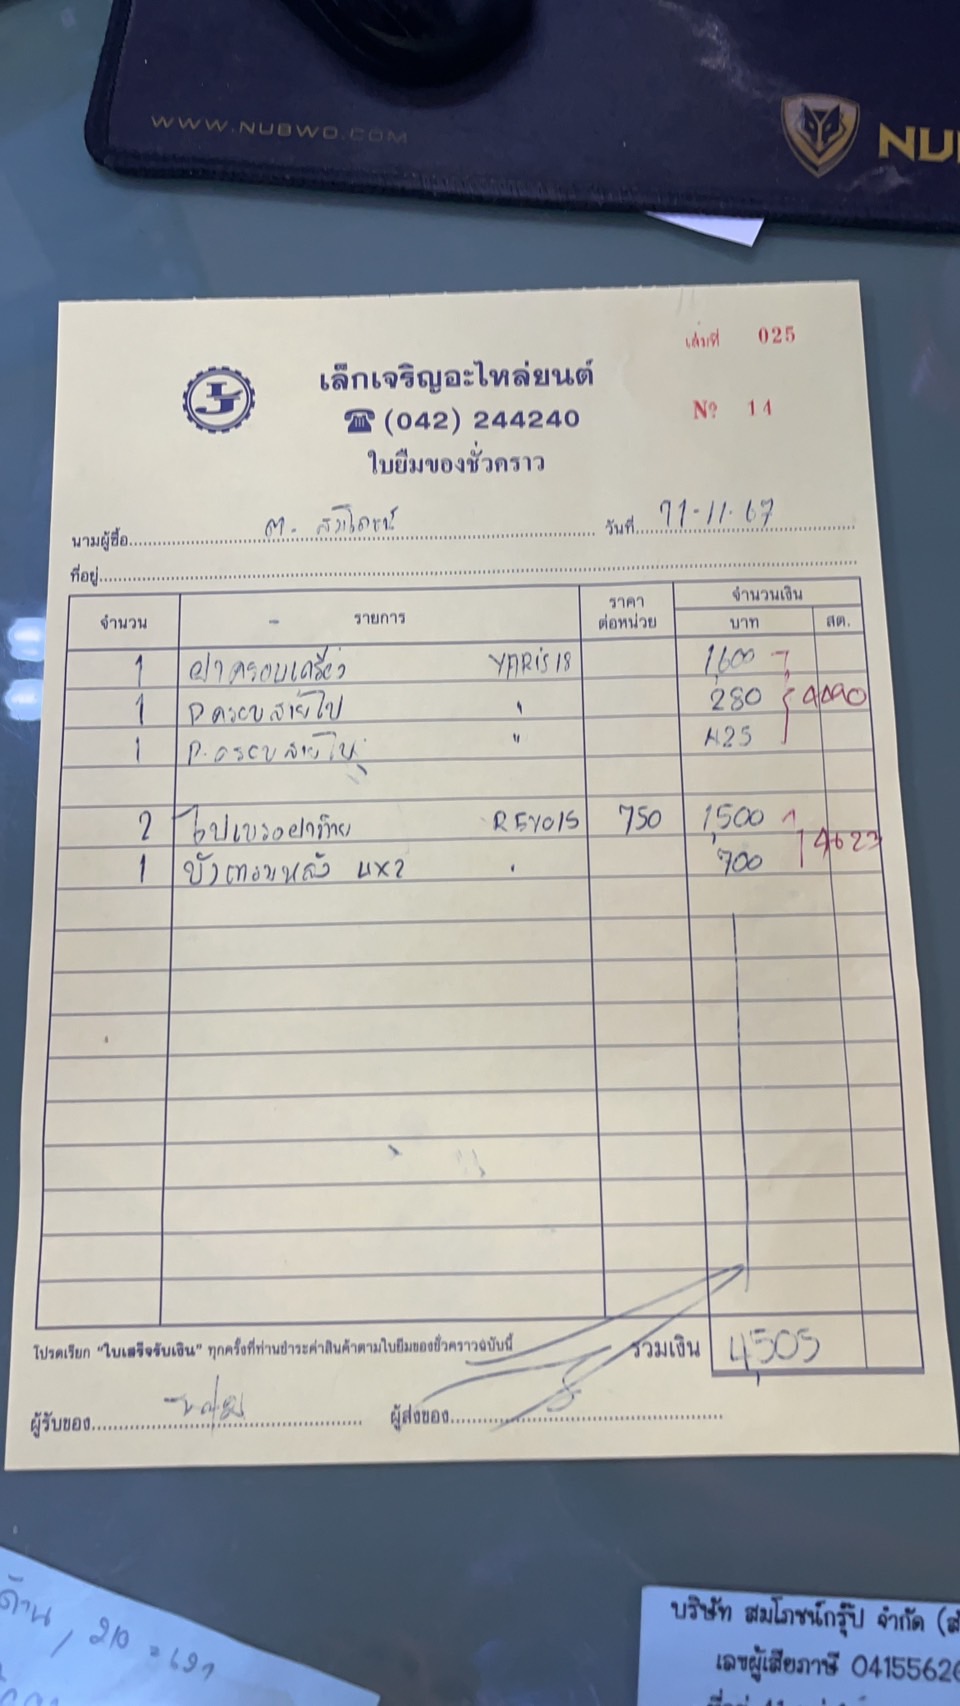 WWW.NUBWO.COM
NU
เล่มที่ 025
เล็กเจริญอะไหล่ยนต์
(042) 244240
Nº 14
ใบยืมของชั่วคราว
นามผู้ซื้อ ต. สมโภชน์ วันที่ 11-11-67
ที่อยู่
จำนวน รายการ ราคาต่อหน่วย จำนวนเงิน
บาท สต.
1 ฝาครอบเครื่อง YARIS 18 1,600
1 P.ครอบสายไป " 280 4090
1 P.ครอบสายไป " 425
2 REVO15 750 1,500
1 บังโคลนหลัง 4x2 " 700 4623
รวมเงิน 4,505
โปรดเรียก "ใบเสร็จรับเงิน" ทุกครั้งที่ท่านชำระค่าสินค้าตามใบยืมของชั่วคราวฉบับนี้
ผู้รับของ ผู้ส่งของ
ด้าน, 210
บริษัท สมโภชน์กรุ๊ป จำกัด
เลขผู้เสียภาษี 04155626